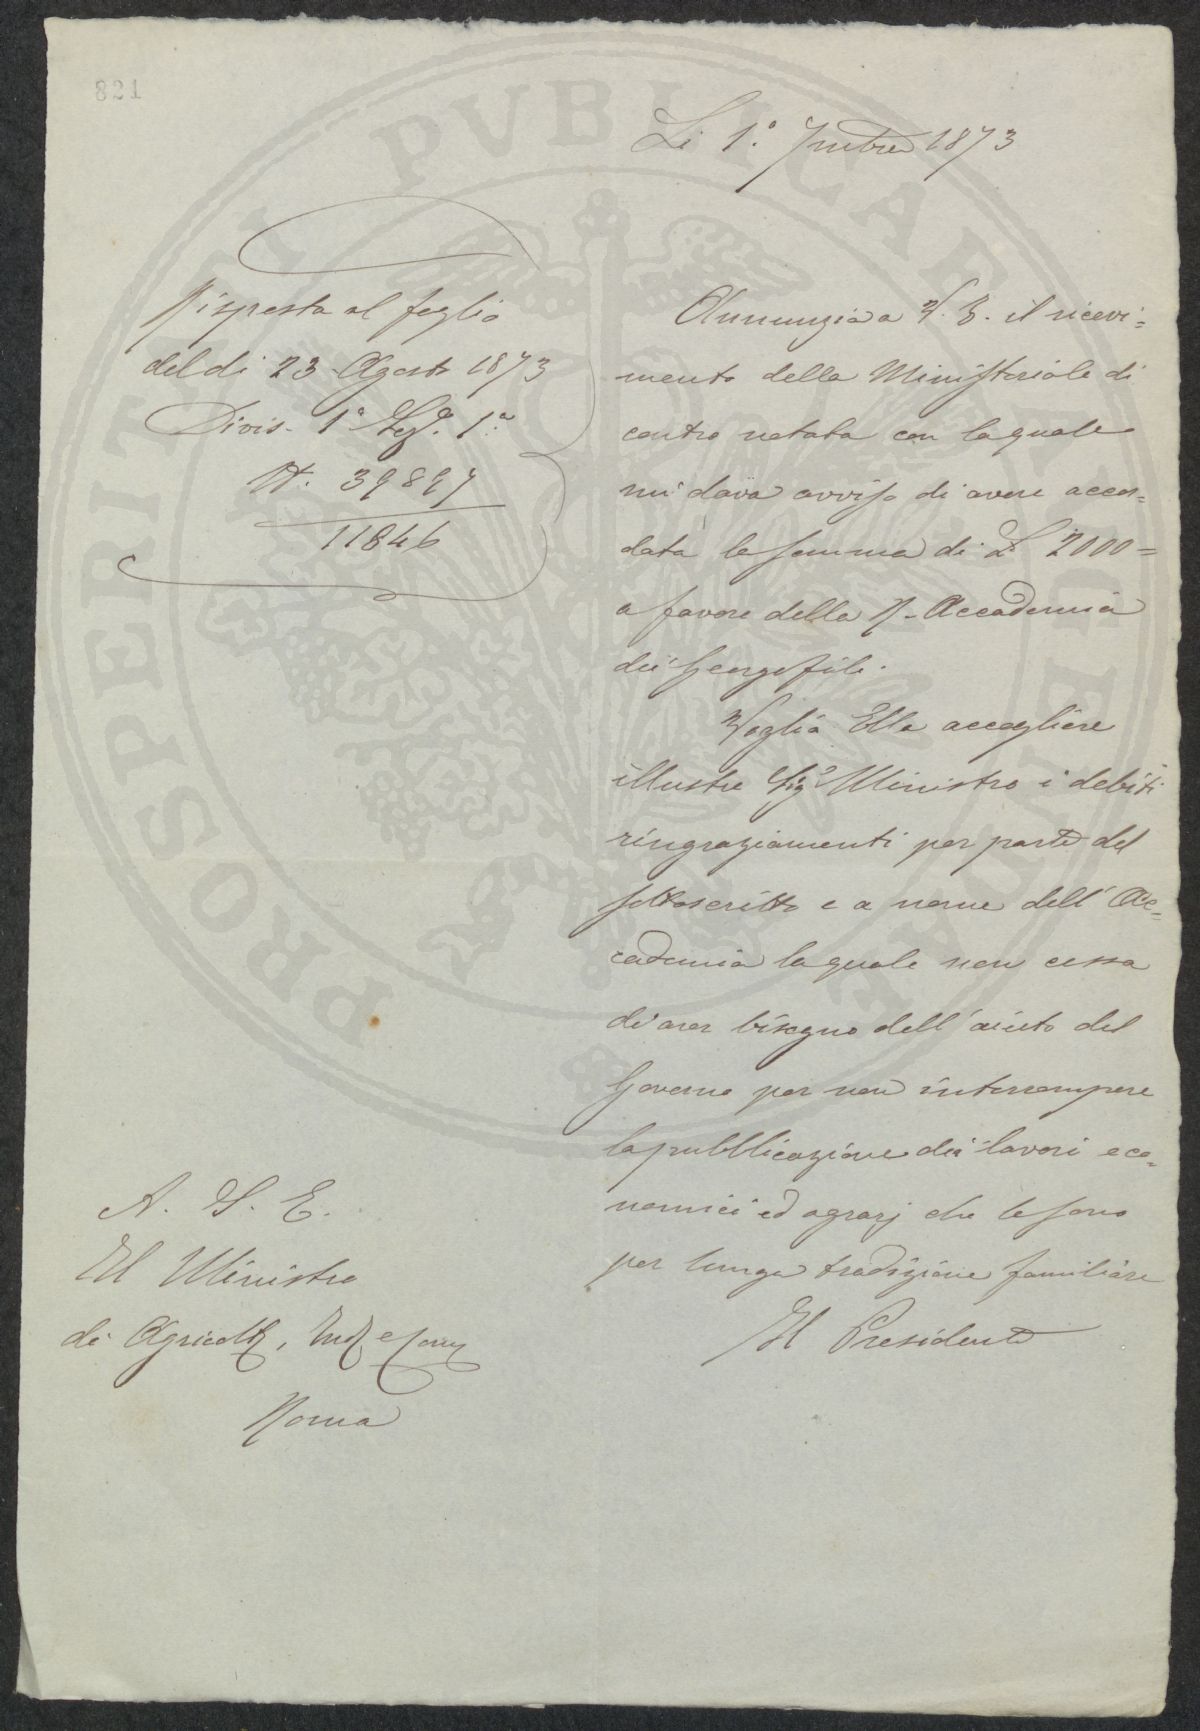 821
Li 1.° 7mbre 1873
Risposta al foglio
del dì 23 Agosto 1873
Divis. 1ª Sez. 1ª
N. 39897
11846
Annunzio a V. E. il ricevi=
mento della Ministeriale di
contro notata con la quale
mi dava avviso di avere accor=
data la somma di L. 2000=
a favore della R. Accademia
dei Georgofili.
Voglia Ella accogliere
illustre Sig.e Ministro i debiti
ringraziamenti per parte del
sottoscritto e a nome dell' Ac=
cademia la quale non cessa
di aver bisogno dell' aiuto del
Governo per non interrompere
la pubblicazione dei lavori eco=
nomici ed agrarj che le sono
per lunga tradizione familiare
Il Presidente
A. S. E.
Il Ministro
di Agricolt., Ind. e Com.
Roma
PROSPERITATI PVBLICAE